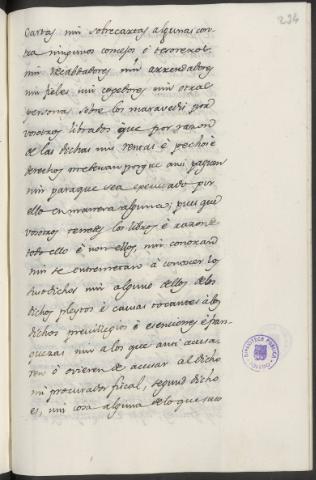 234
Cartas nin sobrecartas algunas con-
tra ningunos concejos é tesoreros
nin recabdadores nin arrendadores
nin fieles nin cogedores nin otras
personas sobre los maravedis por
vosotros librados que por razon
de las dichas mis rentas é pechos é
derechos me devan porque ansi paguen
nin para que sea executado por
ello en manera alguna; pues que
vosotros tenedes los libros é razon de
todo ello é non ellos, nin conozcan
nin se entremetan á conocer los
susodichos nin alguno dellos de los
dichos pleytos é causas tocantes á los
dichos previllegios é esenciones é fran-
quezas nin a los que ansi acusa-
ren ó ovieren de acusar al dicho
mi procurador fiscal, segund dicho
es, nin cosa alguna de lo que suso
BIBLIOTECA PUBLICA
TOLEDO